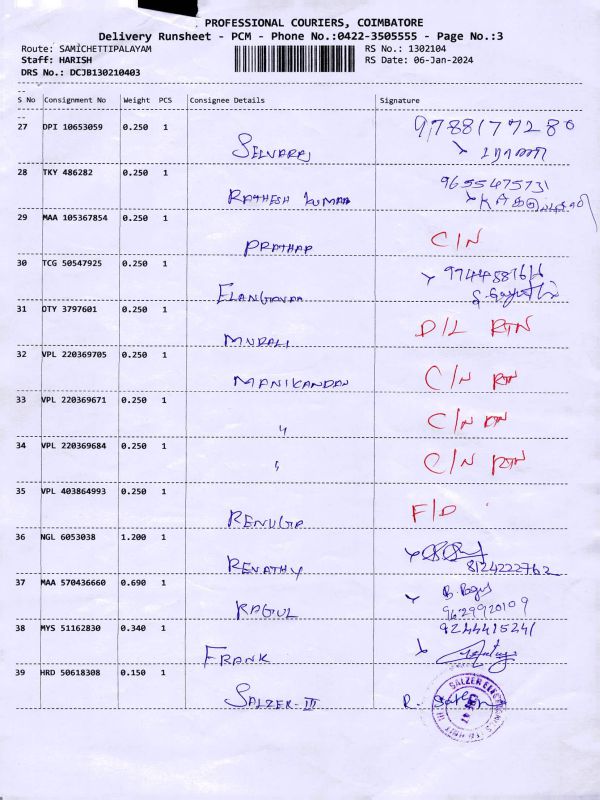 PROFESSIONAL COURIERS, COIMBATORE
Delivery Runsheet - PCM - Phone No.:0422-3505555 - Page No.:3
Route: SAMICHETTIPALAYAM RS No.: 1302104
Staff: HARISH RS Date: 06-Jan-2024
DRS No.: DCJB130210403
S No Consignment No Weight PCS Consignee Details Signature
27 DPI 10653059 0.250 1 SELVARAJ 9788177280
28 TKY 486282 0.250 1 RATHESH KUMAR 9655475731
29 MAA 105367854 0.250 1 PRATHAP C/N
30 TCG 50547925 0.250 1 ELANGOVAN
31 OTY 3797601 0.250 1 MURALI D/L RTN
32 VPL 220369705 0.250 1 MANIKANDAN C/N RTN
33 VPL 220369671 0.250 1 " C/N RTN
34 VPL 220369684 0.250 1 " C/N RTN
35 VPL 403864993 0.250 1 RENUGA F/D
36 NGL 6053038 1.200 1 RENATHY 8124222762
37 MAA 570436660 0.690 1 RAGUL 9629920109
38 MYS 51162830 0.340 1 FRANK 9244415241
39 HRD 50618308 0.150 1 SALZER-III R.
SALZER ELECTRONICS LTD UNIT III